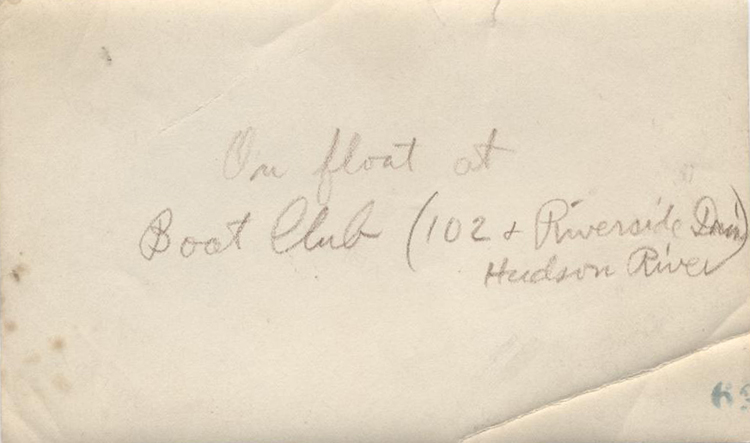 On float at
Boat Club (102 & Riverside Drive)
Hudson River